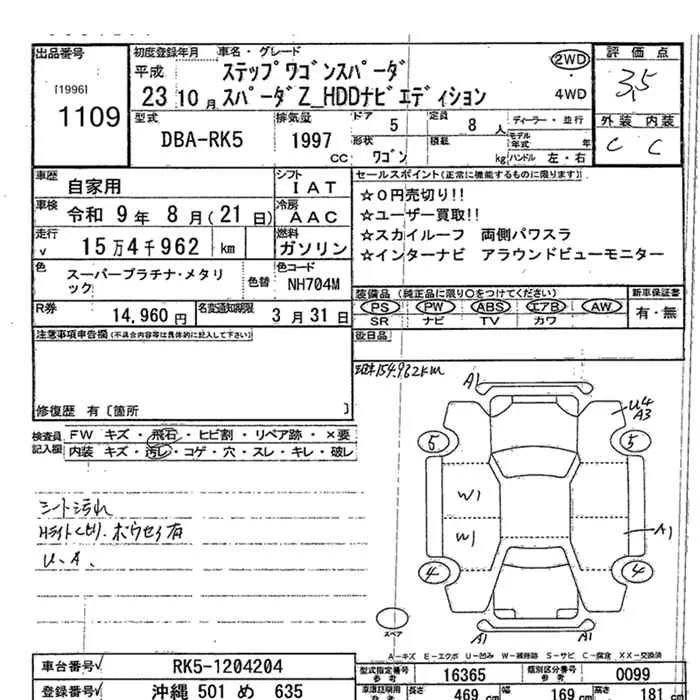 出品番号
[1996]
1109
初度登録年月 車名・グレード
平成
23 10月
ステップワゴンスパーダ
スパーダZ_HDDナビエディション
2WD
4WD
評価点
3.5
外装 内装
C C
型式
DBA-RK5
排気量
1997
cc
ドア 5
定員 8 人
形状
ワゴン
積載
kg
ディーラー・並行
モデル年式 年
ハンドル 左・右
車歴 自家用
シフト IAT
車検 令和 9年 8月(21日)
冷房 AAC
走行 15万4千962 km
v
燃料 ガソリン
色 スーパープラチナ・メタリ
ック
色替
色コード
NH704M
R券 14,960円
名変通知期限 3月31日
セールスポイント(正常に機能するものに限ります)
☆0円売切り!!
☆ユーザー買取!!
☆スカイルーフ 両側パワスラ
☆インターナビ アラウンドビューモニター
装備品(純正品に限り○をつけてください)
PS PW ABS エアB AW
SR ナビ TV カワ
新車保証書
有・無
後日品
注意事項申告欄(不具合内容等は具体的に記入して下さい)
修復歴 有〔箇所 〕
検査員
記入欄
FW キズ・飛石・ヒビ割・リペア跡・×要
内装 キズ・汚し・コゲ・穴・スレ・キレ・破レ
シート汚れ
U.A.
154.962km
A1
U4
A3
5
5
W1
W1
A1
4
4
スペア
A1
A1
A-キズ E-エクボ U-凹み W-補修跡 S-サビ C-腐食 XX-交換済
車台番号√ RK5-1204204
登録番号√ 沖縄 501 め 635
型式指定番号
参考
16365
類別区分番号
参考
0099
長さ 469 cm 幅 169 cm 高さ 181 cm